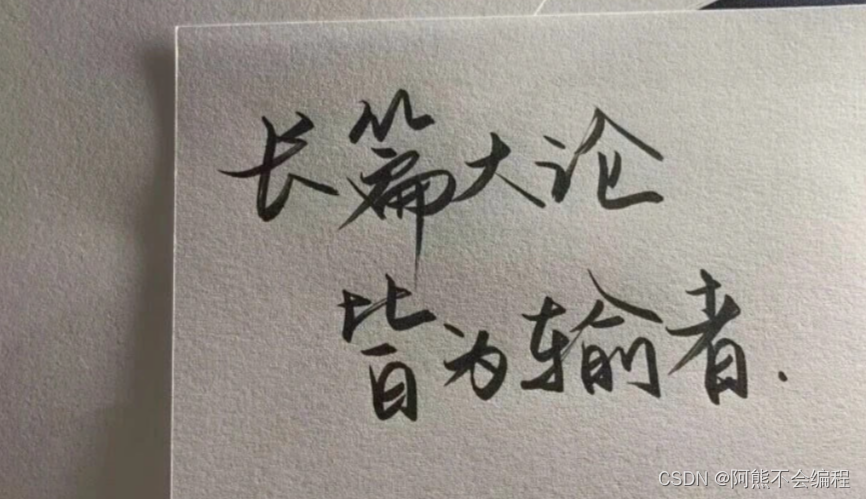 长篇大论
皆为输者.
CSDN @阿熊不会编程